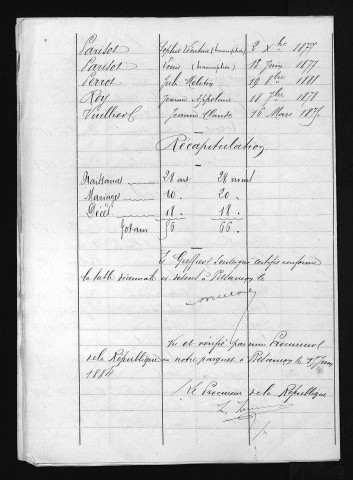 Parisot Sophie (transcription) 2 Xbre 1877
Parisot Louis (transcription) 12 Juin 1879
Perrot Jules 19 1881
Roy Jeanne Appoline 18 7bre 1878
Vuillier Jeanne Claude 16 Mars 187
Récapitulation
Naissances 28 act 28 noms
Mariages 10 . 20 .
Décès 18 . 18 .
Totaux 56 66 .
Le Greffier soussigné certifie conforme
la table décennale ci dessus à Besançon le
Vu et vérifié par nous Procureur
de la République en notre parquet à Besançon le Juin
1884
Le Procureur de la République